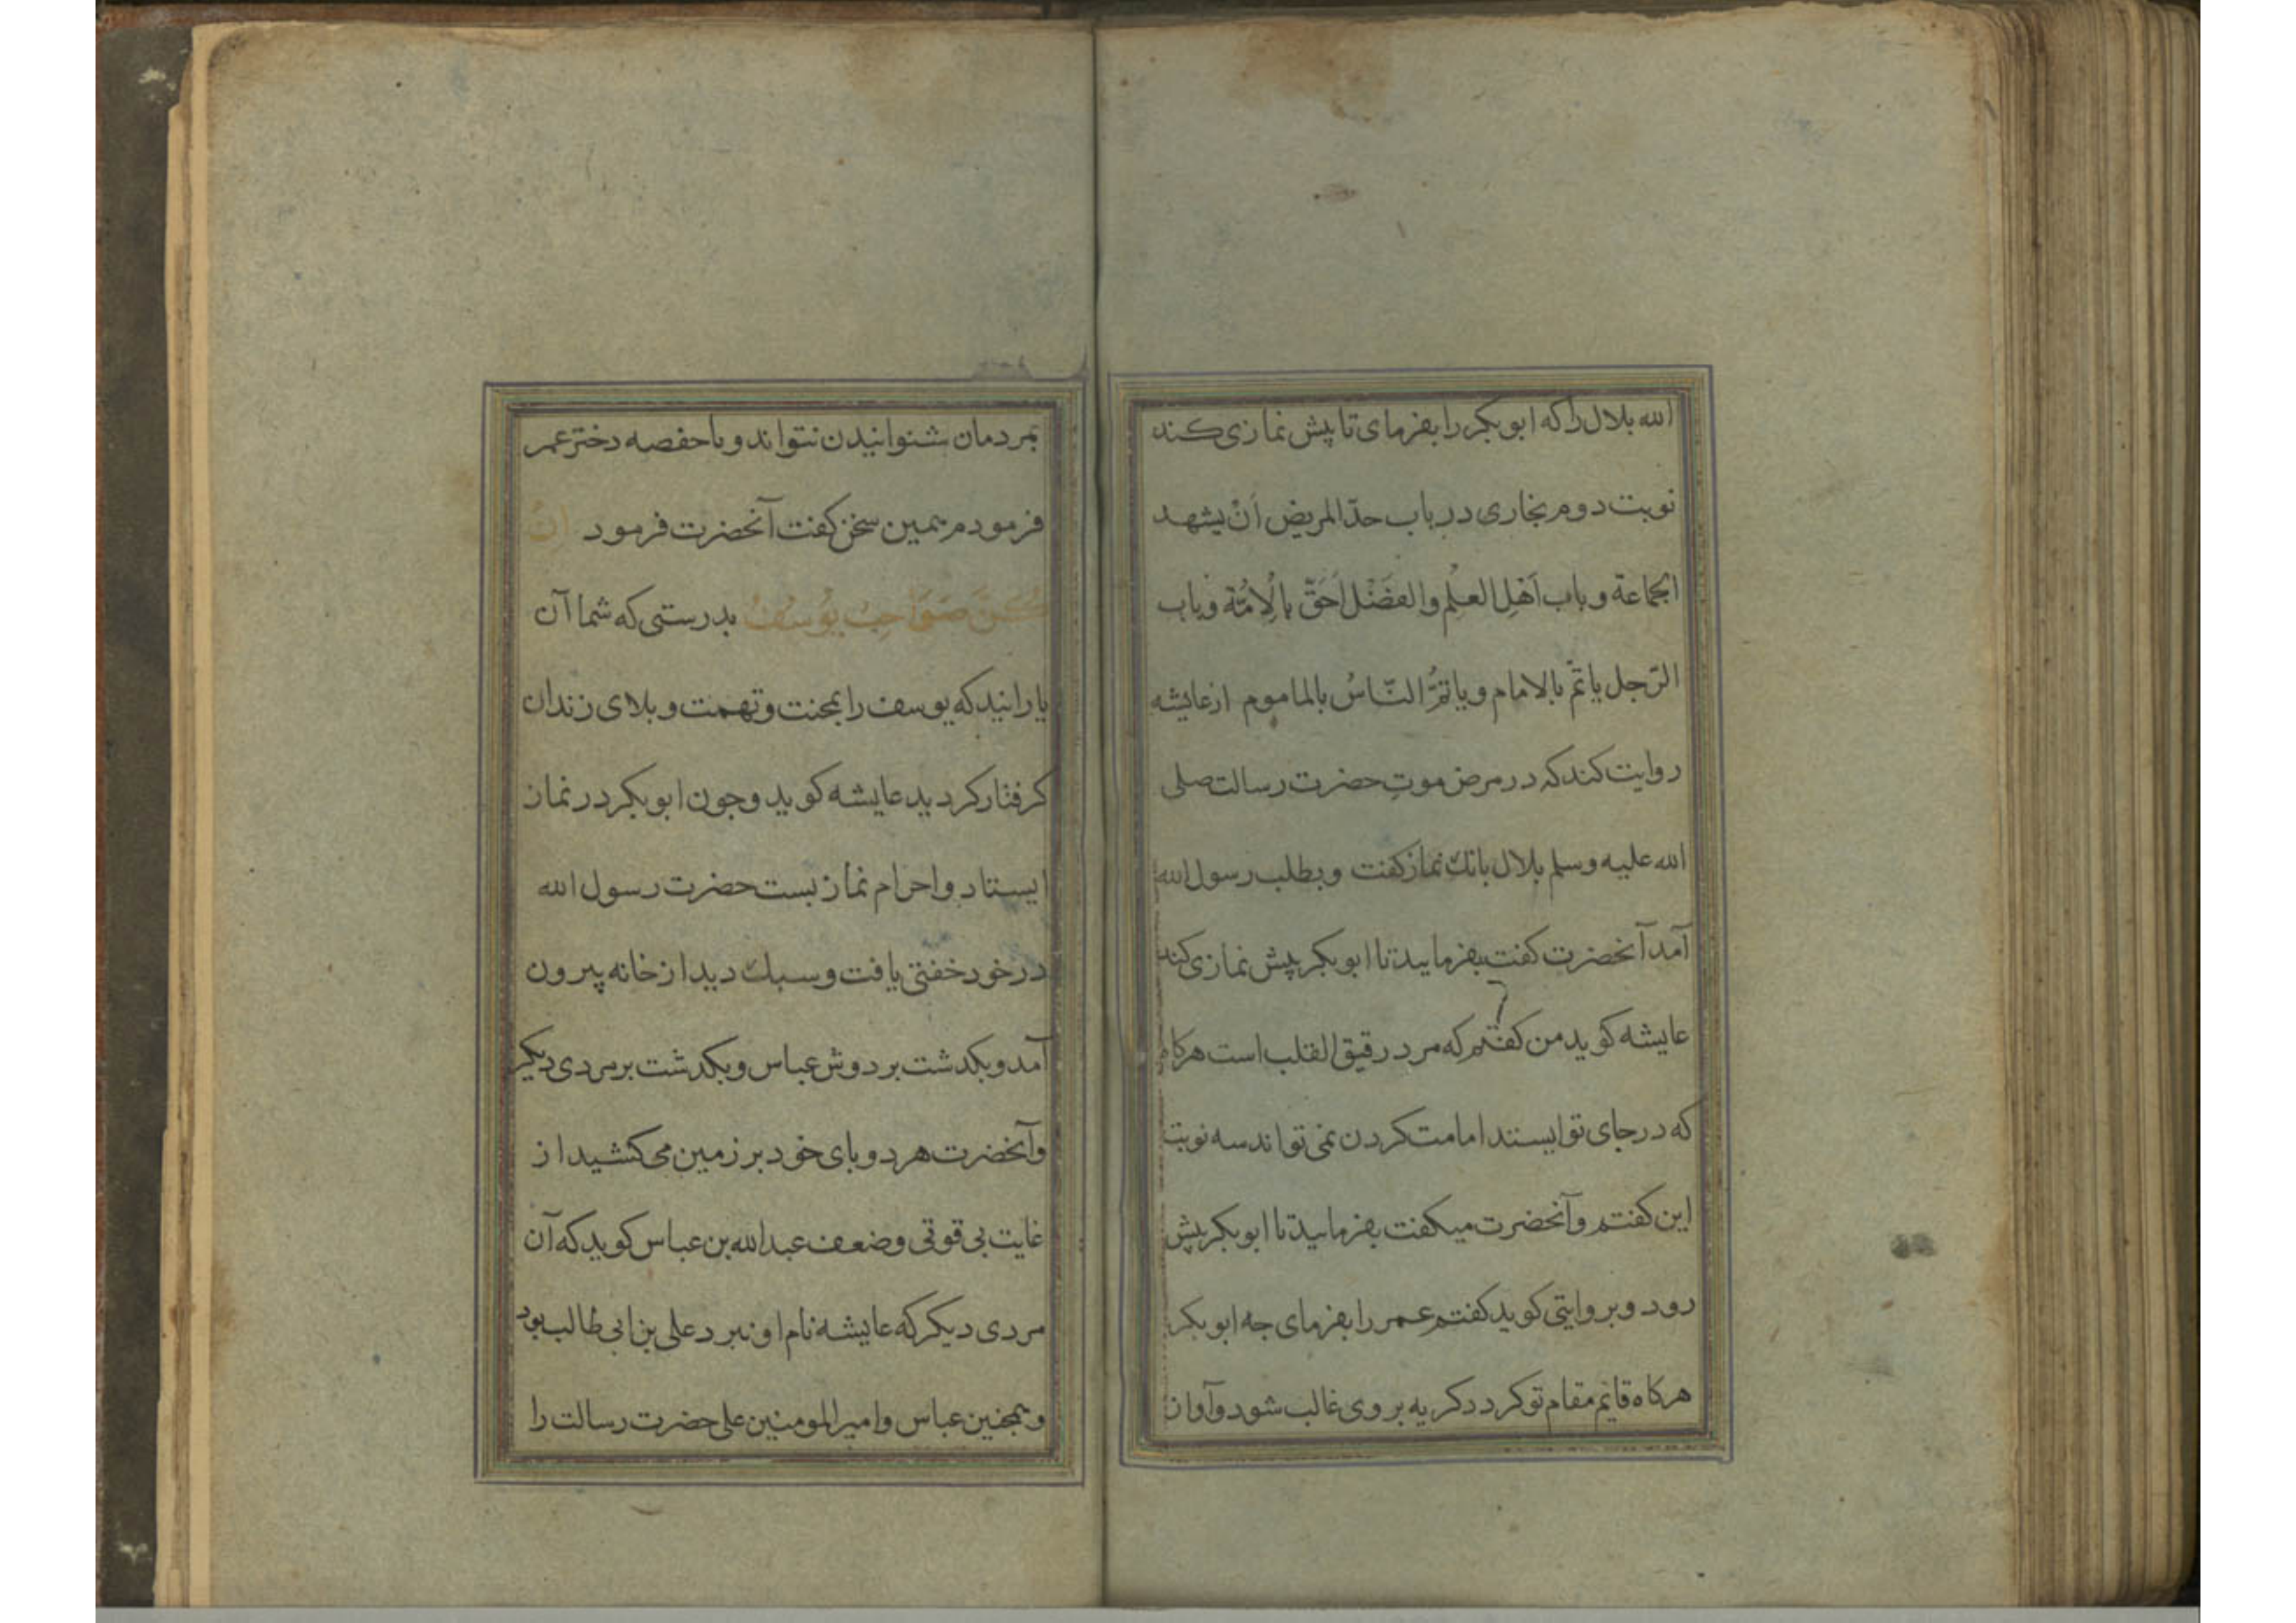 الله بلال را که ابوبکر را بفرمای تا پیش نمازی کند
نوبت دوم بخاری در باب حدّ المریض اَنْ یشهد
الجماعة و باب اَهْلِ العِلْم والفَضْل اَحَقّ بالْاِمَامَة و باب
الرّجل یاتمّ بالامام و یاتمُّ النّاسُ بالماموم از عایشه
روایت کند که در مرض موتِ حضرت رسالت صلی
الله علیه وسلم بلال بانک نماز کفت و بطلب رسول الله
آمد آنحضرت کفت بفرمایید تا ابوبکر پیش نمازی کند
عایشه کوید من کفتم که مرد رقیق القلب است هرکاه
که در جای تو ایستد امامت کردن نمی تواند سه نوبت
این کفتم و آنحضرت میکفت بفرمایید تا ابوبکر پیش
رود و بروایتی کوید کفتم عمر را بفرمای جه ابوبکر
هرکاه قایم مقام تو کردد کریه بر وی غالب شود و آواز
بمردمان شنوانیدن نتواند و با حفصه دختر عمر
فرمودم همین سخن کفت آنحضرت فرمود اِنَّ
کُنَّ صَوَاحِبُ یُوسُفُ بدرستی که شما آن
یارانید که یوسف را بمحنت و تهمت و بلای زندان
کرفتار کردید عایشه کوید و جون ابوبکر در نماز
ایستاد و احرام نماز بست حضرت رسول الله
در خود خفتی یافت و سبک دید از خانه بیرون
آمد و بکدشت بر دوش عباس و بکدشت بر مردی دیکر
و آنحضرت هر دو بای خود بر زمین می کشید از
غایت بی قوتی و ضعف عبدالله بن عباس کوید که آن
مردی دیکر که عایشه نام او نبرد علی بن ابی طالب بود
و همجنین عباس و امیرالمومنین علی حضرت رسالت را